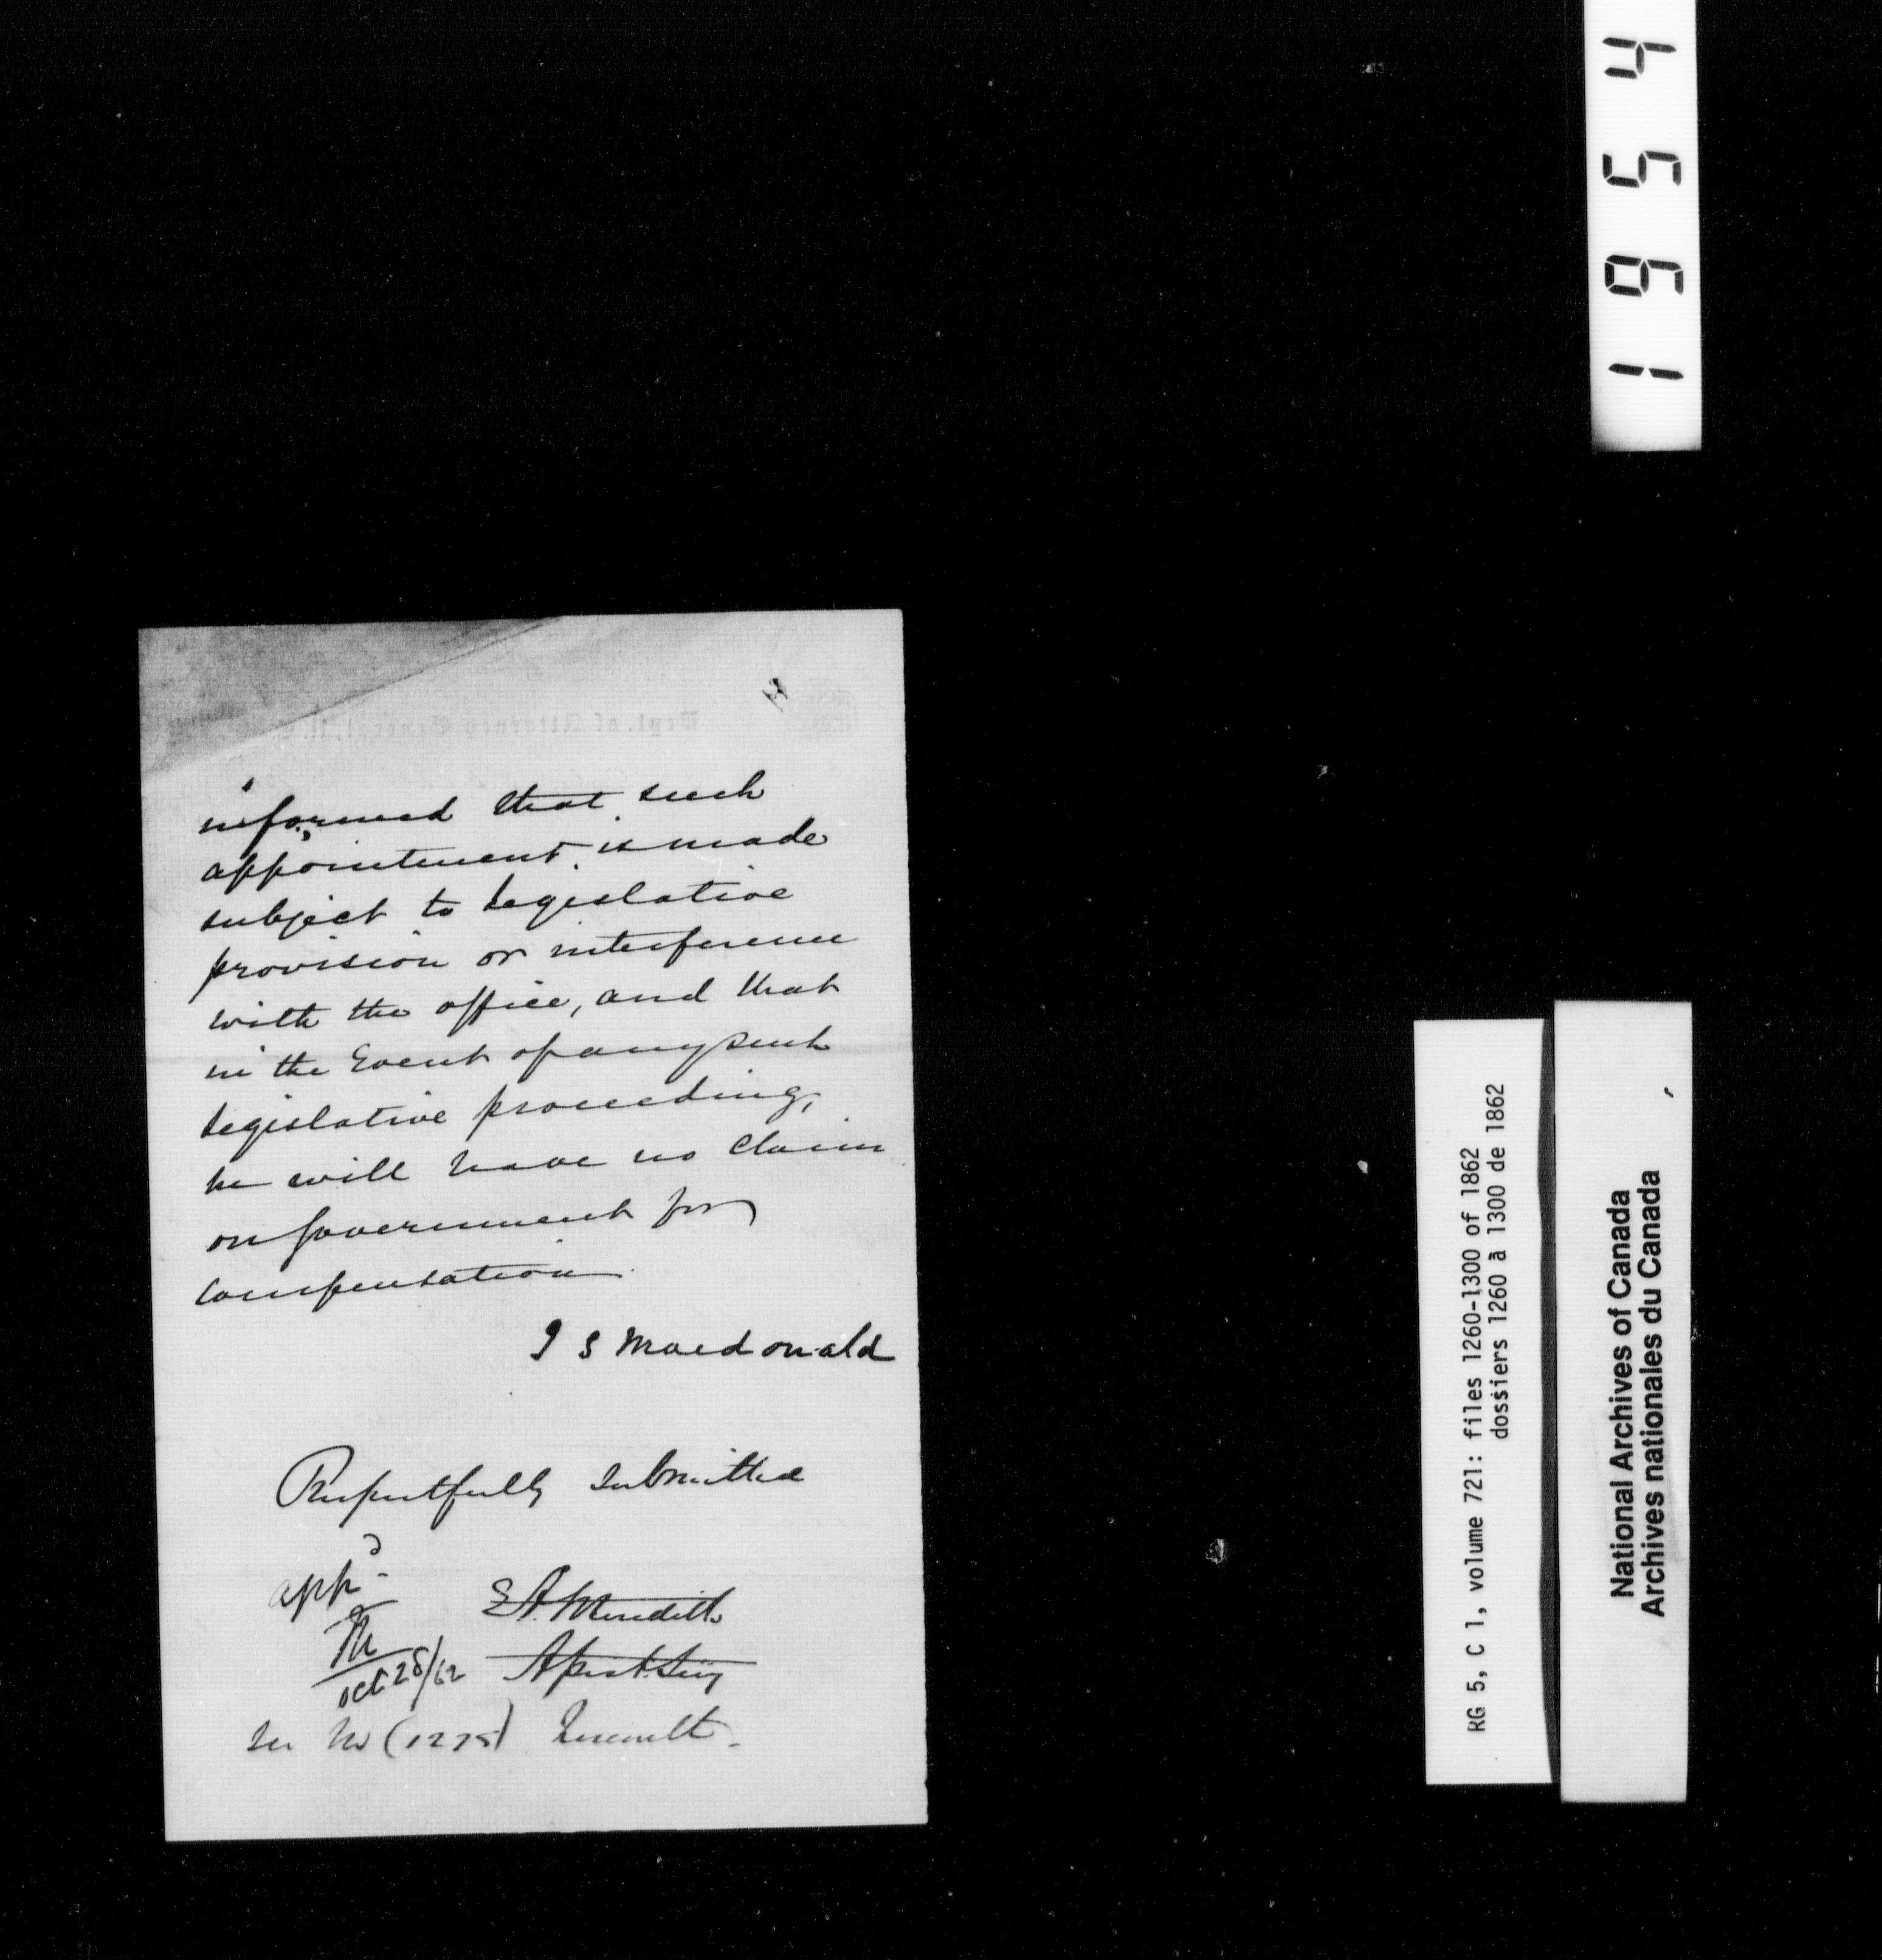 informed that such
appointment is made
subject to Legislative
provision or interference
with the office, and that
in the Event of any such
Legislative proceeding,
he will have no Claim
on Government for
Compensation.
J S Macdonald
Respectfully submitted
appd
E A Meredith
Asst Secy
Oct 28/62
(1275)
1954
RG 5, C 1, volume 721: files 1260-1300 of 1862
dossiers 1260 à 1300 de 1862
National Archives of Canada
Archives nationales du Canada